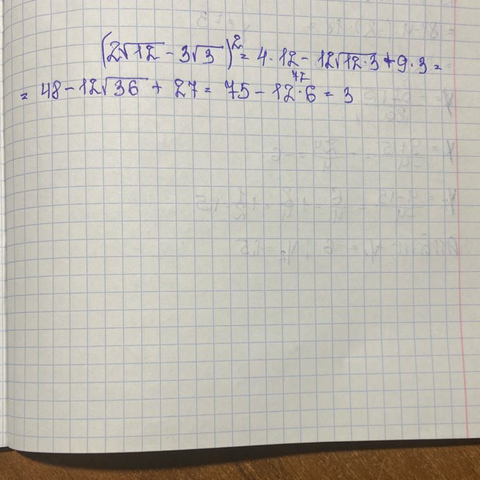 (2√12 - 3√3)² = 4·12 - 12√12·3 + 9·3 =
72
= 48 - 12√36 + 27 = 75 - 12·6 = 3